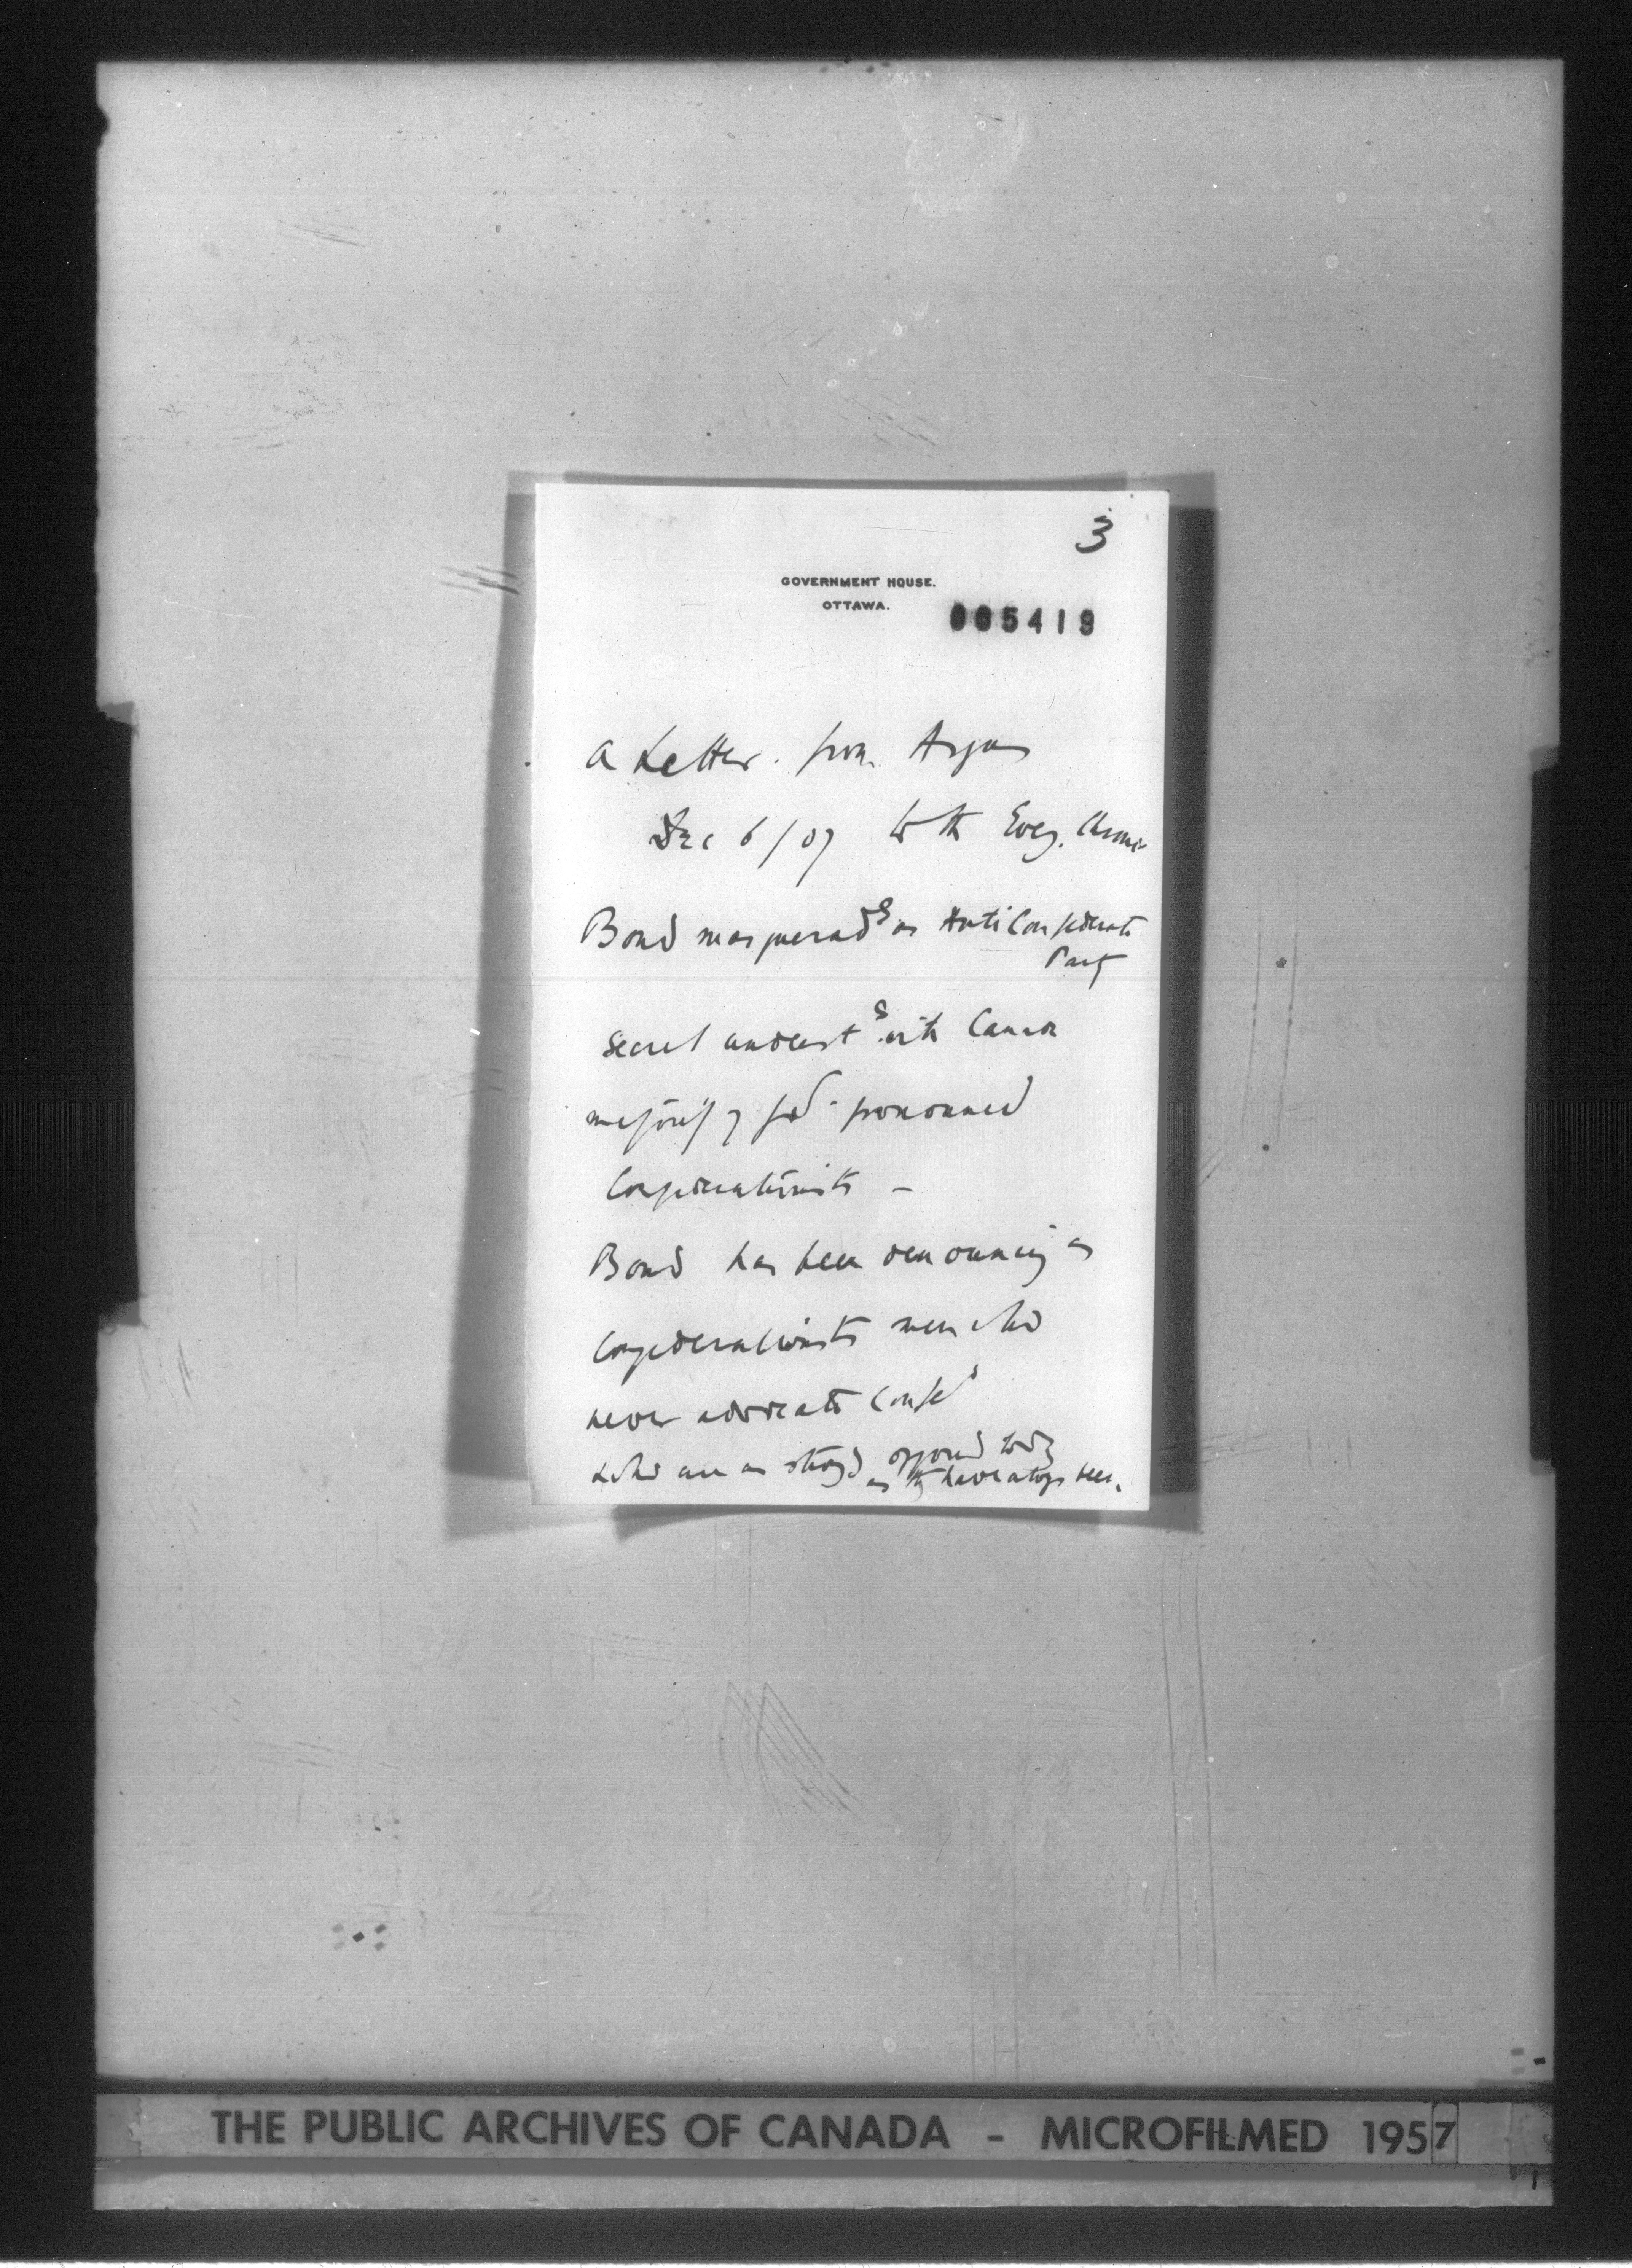 3
GOVERNMENT HOUSE.
OTTAWA.
005419
A Letter. from Argus
Dec 6/07 to the Eveg. Chronic
Bond masqueradg as Anti Confederate
Party
Secret underst g with Canada
majority of pronounced
Confederationists –
Bond has been denouncing as
Confederationists men who
never advocate Confed
who are as strongly opposed today
as they have always been.
THE PUBLIC ARCHIVES OF CANADA - MICROFILMED 1957